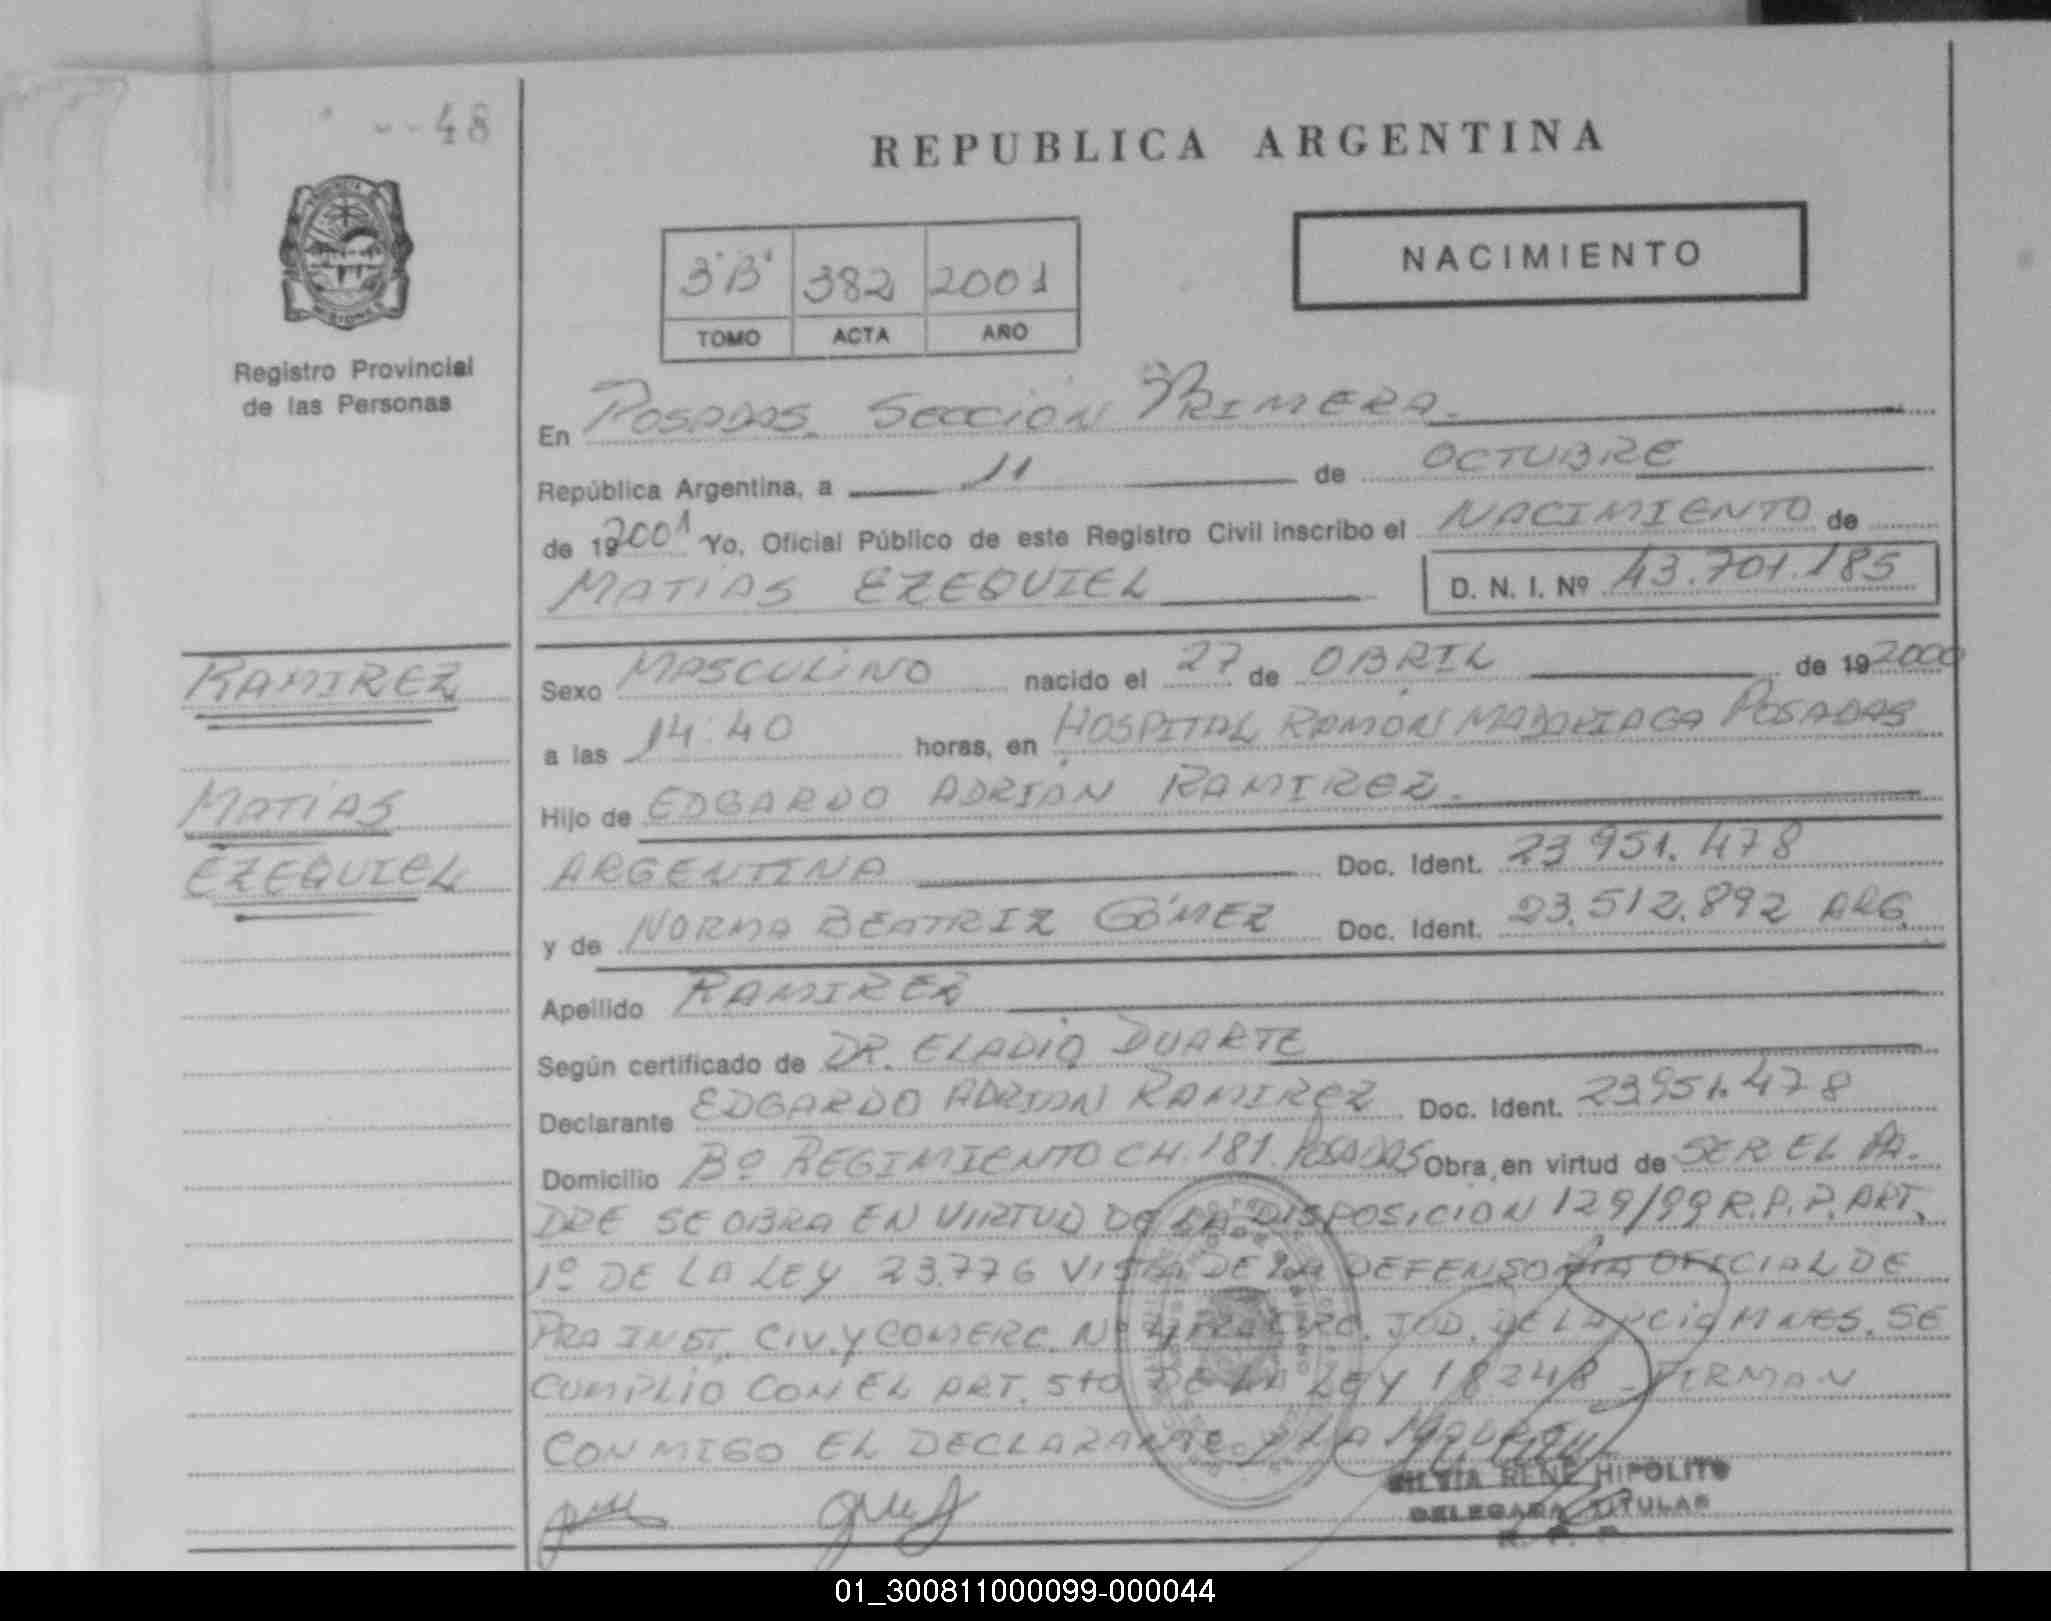 48
REPUBLICA ARGENTINA
PROVINCIA
MISIONES
Registro Provincial
de las Personas
3"B" 382 2001
TOMO ACTA AÑO
NACIMIENTO
En POSADAS SECCION PRIMERA.
República Argentina, a 11 de OCTUBRE
de 192001 Yo, Oficial Público de este Registro Civil inscribo el NACIMIENTO de
MATIAS EZEQUIEL D. N. I. Nº 43.701.185
RAMIREZ
MATIAS
EZEQUIEL
Sexo MASCULINO nacido el 27 de ABRIL de 192000
a las 14:40 horas, en HOSPITAL RAMON MADARIAGA POSADAS
Hijo de EDGARDO ADRIAN RAMIREZ.
ARGENTINA Doc. Ident. 23 951.478
y de NORMA BEATRIZ GÓMEZ Doc. Ident. 23.512.892 ARG.
Apellido RAMIREZ
Según certificado de DR. ELADIO DUARTE
Declarante EDGARDO ADRIAN RAMIREZ Doc. Ident. 23951.478
Domicilio Bº REGIMIENTO CH. 181. POSADAS Obra, en virtud de SER EL PA.
DRE SE OBRA EN VIRTUD DE LA DISPOSICION 129/99 R.P.P. ART.
1º DE LA LEY 23.776 VISTA DE LA DEFENSORIA OFICIAL DE
PRA INST. CIV. Y COMERC. Nº 4 JUD. DE MNES. SE
CUMPLIO CON EL ART. 5to DE LA LEY 18248 FIRMAN
CONMIGO EL DECLARANTE Y LA MADRE
SILVIA RENE HIPOLITO
DELEGADA TITULAR
R. P. P.
01_300811000099-000044